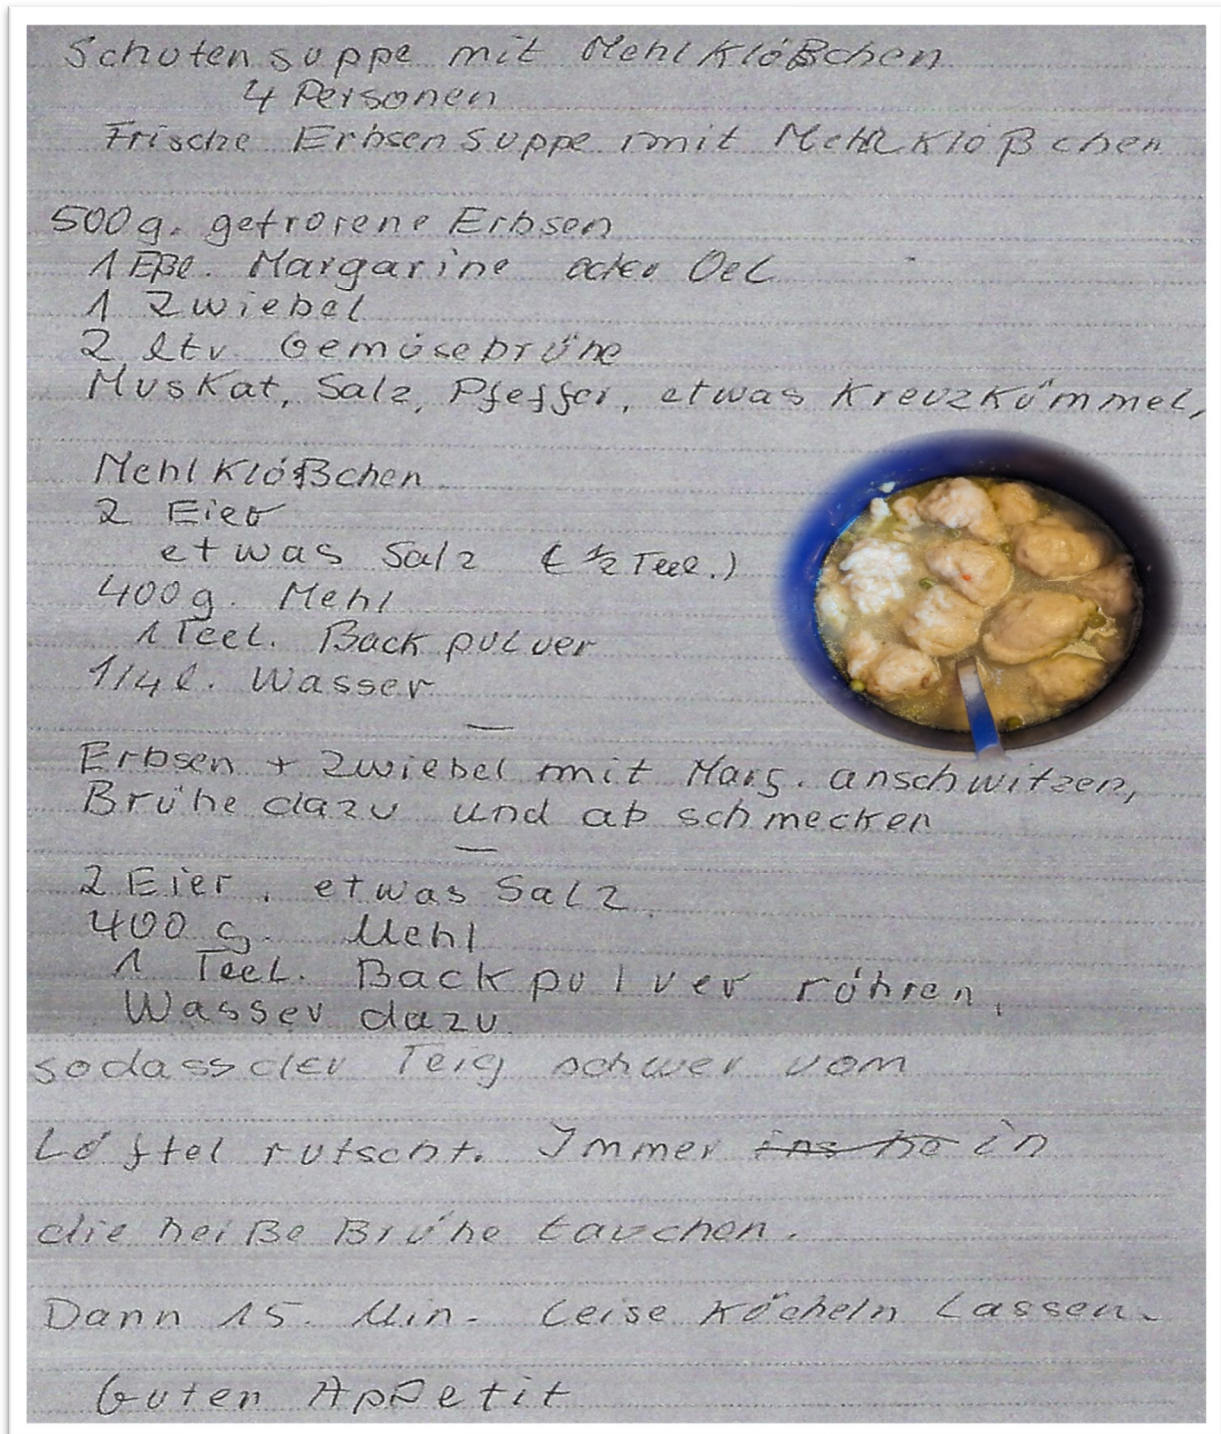 Schotensuppe mit Mehlklößchen
4 Personen
Frische Erbsensuppe mit Mehlklößchen
500g. gefrorene Erbsen
1 Eßl. Margarine oder Oel
1 Zwiebel
2 ltr Gemüsebrühe
Muskat, Salz, Pfeffer, etwas Kreuzkümmel,
Mehlklößchen
2 Eier
etwas Salz (½ Teel.)
400g. Mehl
1 Teel. Backpulver
1/4 l. Wasser
—
Erbsen + Zwiebel mit Marg. anschwitzen,
Brühe dazu und abschmecken
—
2 Eier, etwas Salz
400 g. Mehl
1 Teel. Backpulver rühren,
Wasser dazu
sodass der Teig schwer vom
Löffel rutscht. Immer in
die heiße Brühe tauchen.
Dann 15. Min. leise köcheln lassen.
Guten Appetit